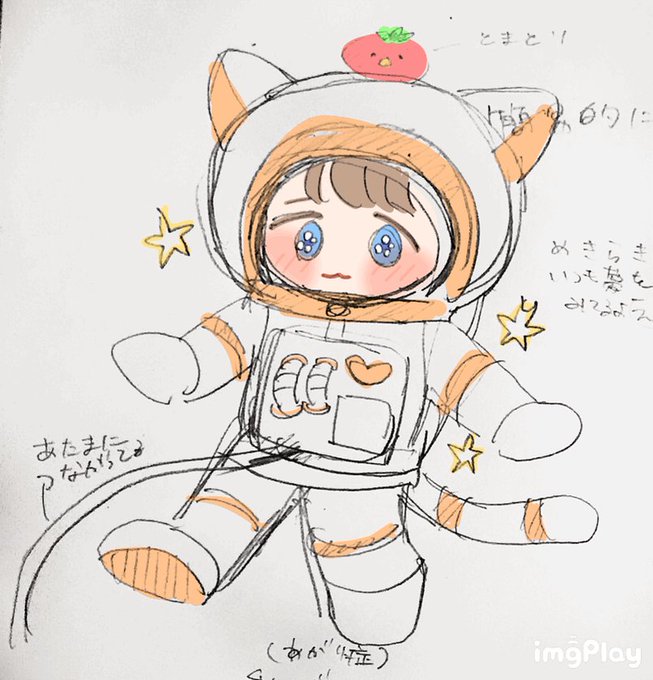 とまとり
的に
めきらき
いつも夢を
みてるような
あたまに
ながってる
(あがり症)
imgPlay